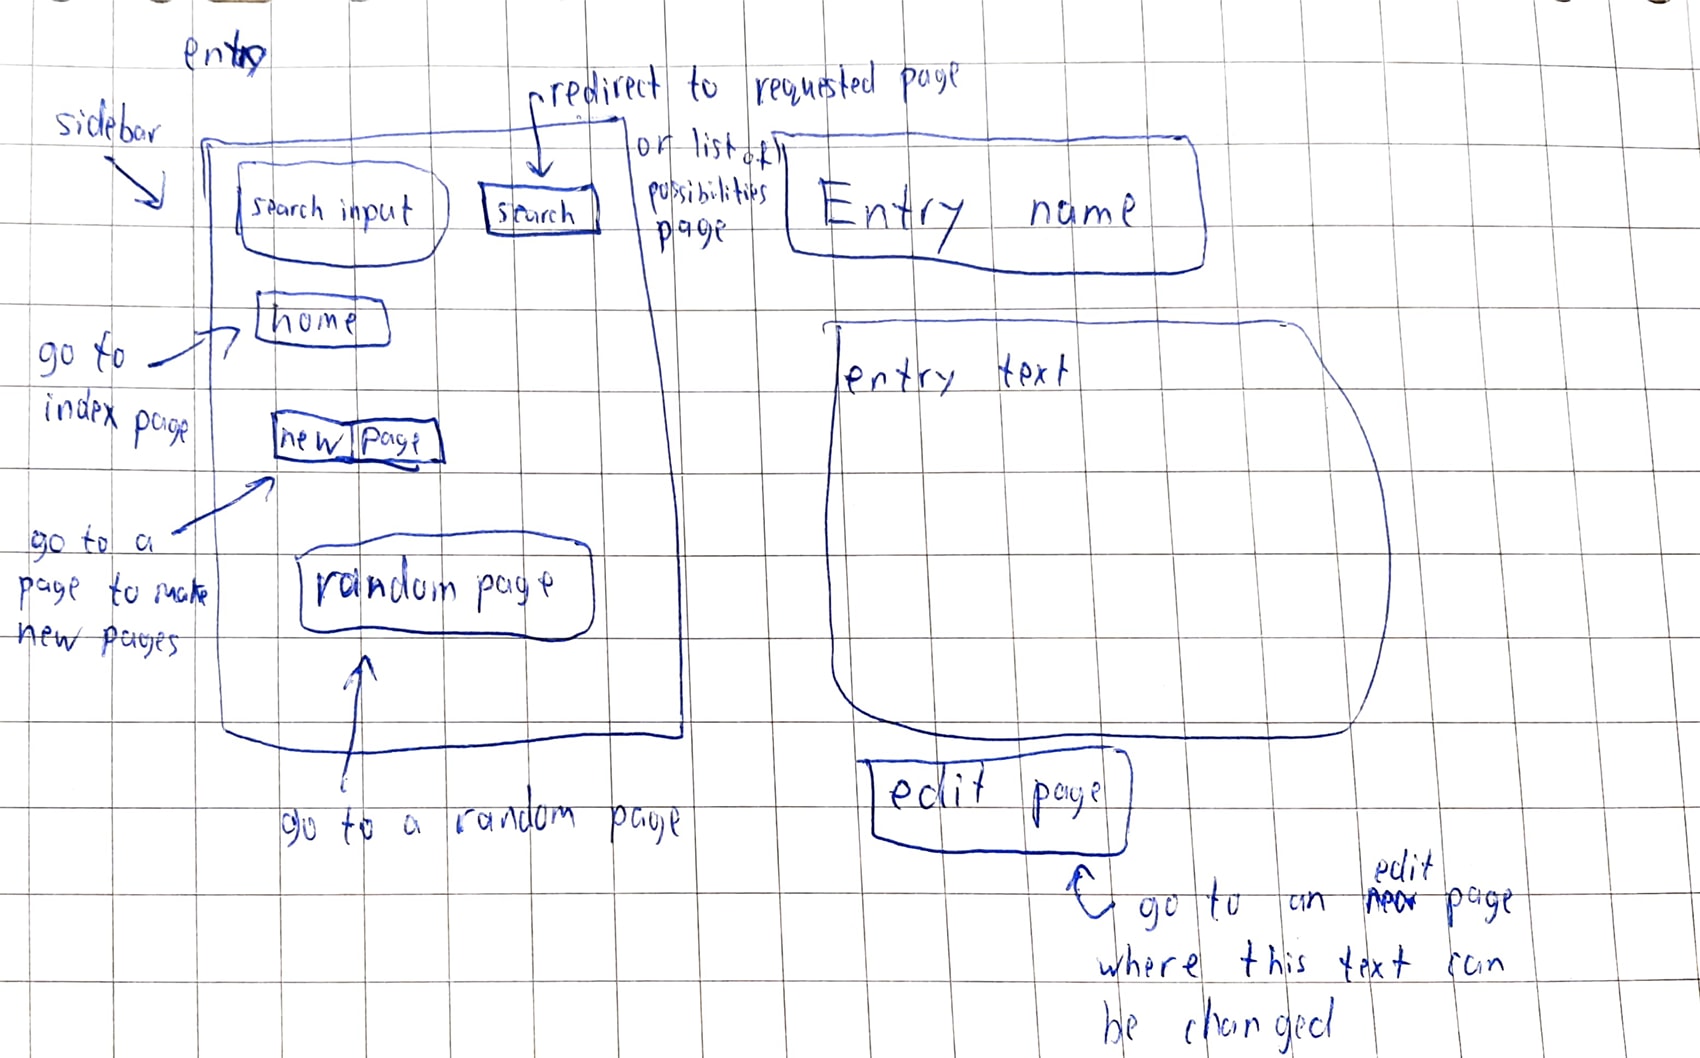 entry
sidebar
redirect to requested page
or list of
possibilities
page
search input
search
home
go to
index page
new page
go to a
page to make
new pages
random page
go to a random page
Entry name
entry text
edit page
edit
go to an page
where this text can
be changed